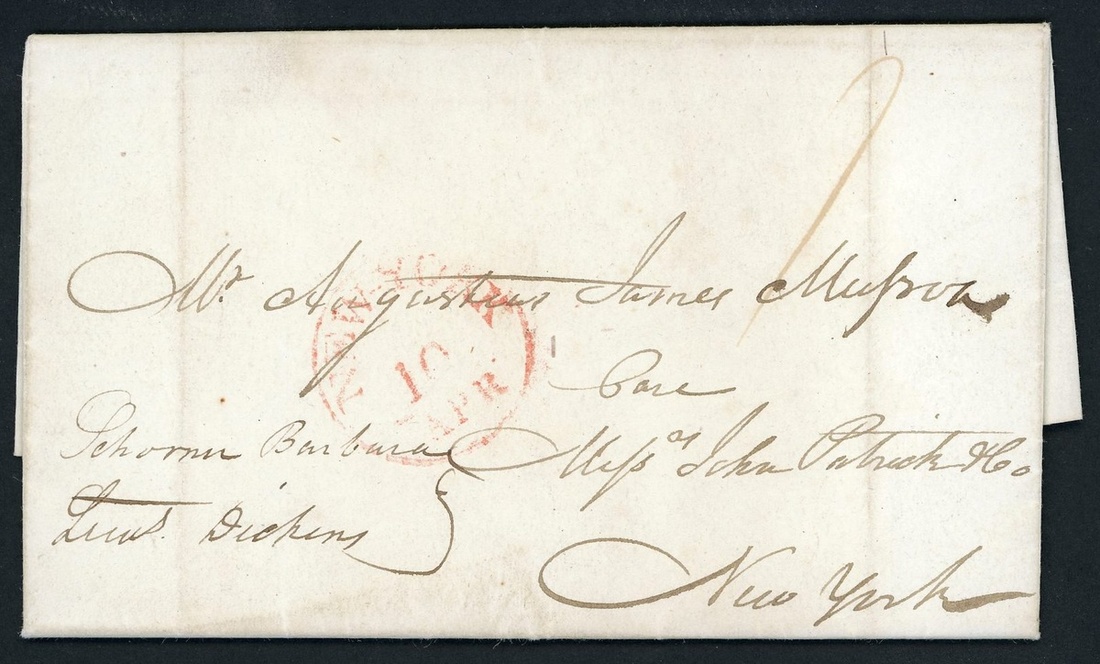 Mr. Augustus James
NEW-YORK
10
APR
Care
Barbara
Messrs John Patrick & Co
Lieut. Dickens
New York